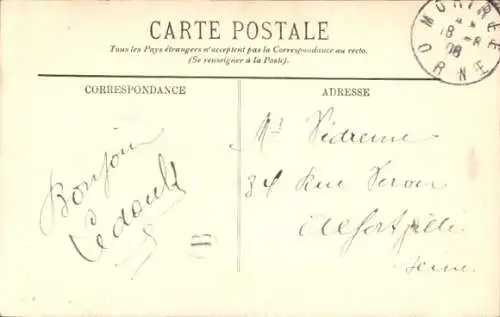 CARTE POSTALE
Tous les Pays étrangers n'acceptent pas la Correspondance au recto.
(Se renseigner à la Poste).
MORTRÉE
18 -8
08
ORNE
CORRESPONDANCE
ADRESSE
Bonjour
Ledoult
B
Mr Vedrenne
34 Rue Véron
Alfortville
Seine